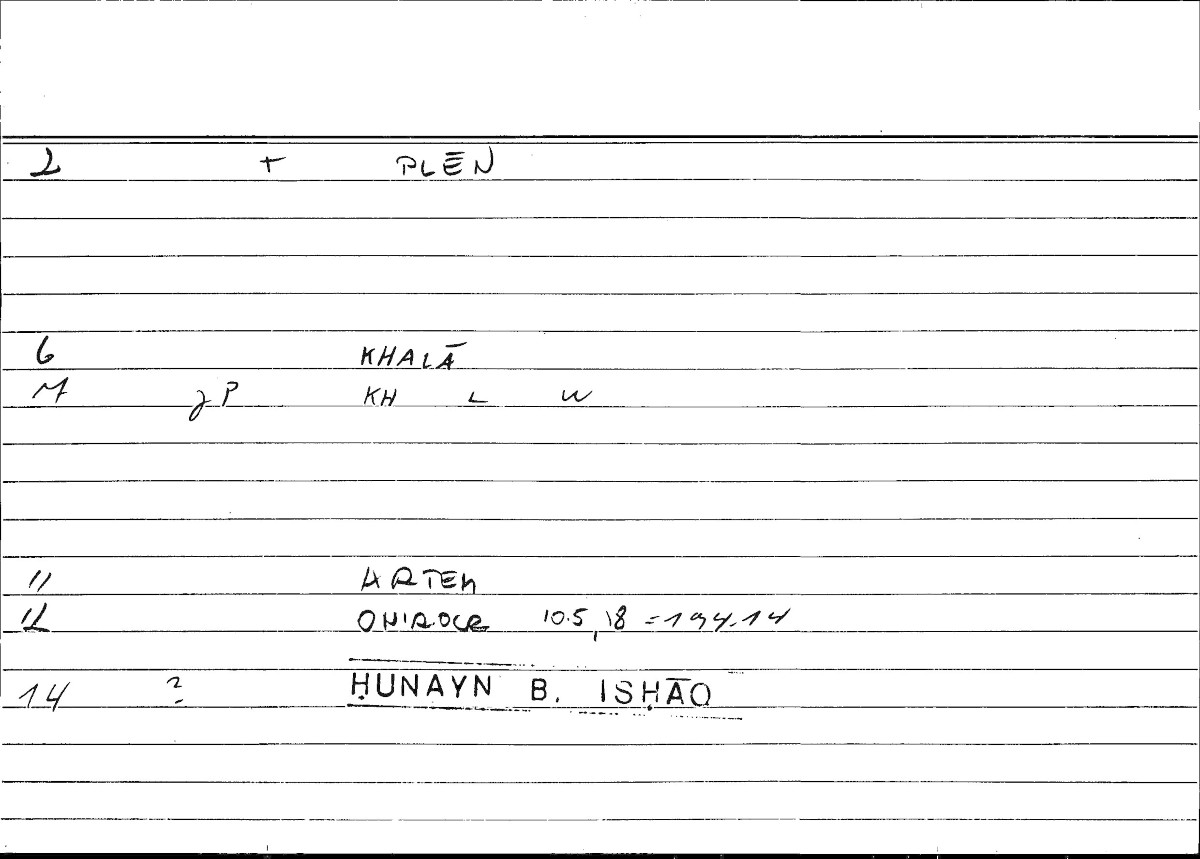 2 + PLĒN
6 KHALĀ
M P KH L W
11 ARTEM
12 ONIROCR 10.5,18 = 194.14
14 ? ḤUNAYN B. ISḤĀQ